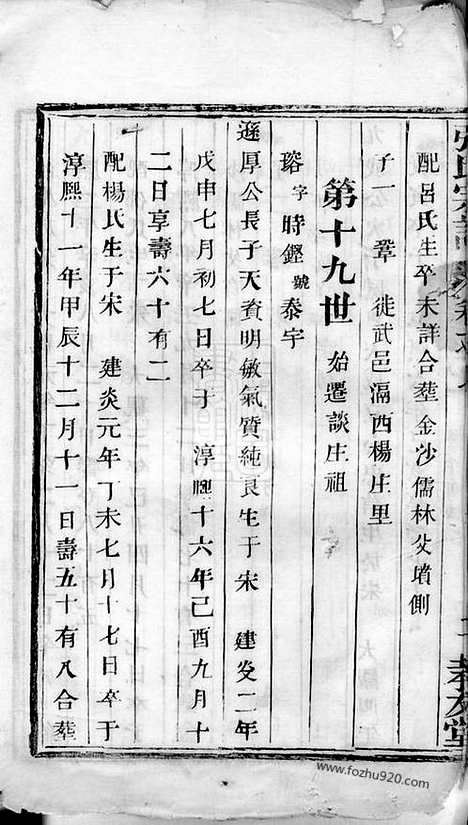 配呂氏生卒未詳合塟金沙儒林父墳側
子一 鞏 徙武邑滆西楊庄里
第十九世 始遷談庄祖
瑢字時鏗號泰宇
遜厚公長子天資明敏氣質純良生于宋 建炎二年
戊申七月初七日卒于 淳熈十六年己酉九月十
二日享壽六十有二
配楊氏生于宋 建炎元年丁未七月十七日卒于
淳熈十一年甲辰十二月十一日壽五十有八合塟
www.fozhu920.com